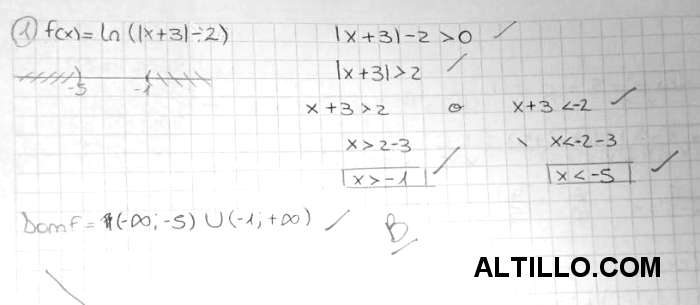 ① f(x) = ln (|x+3|-2)
|x+3|-2 > 0 ✓
|x+3| > 2 ✓
-5 -1
x+3 > 2 o x+3 < -2 ✓
x > 2-3 x < -2-3
x > -1 ✓ x < -5 ✓
Domf = (-∞; -5) ∪ (-1; +∞) ✓
B
ALTILLO.COM